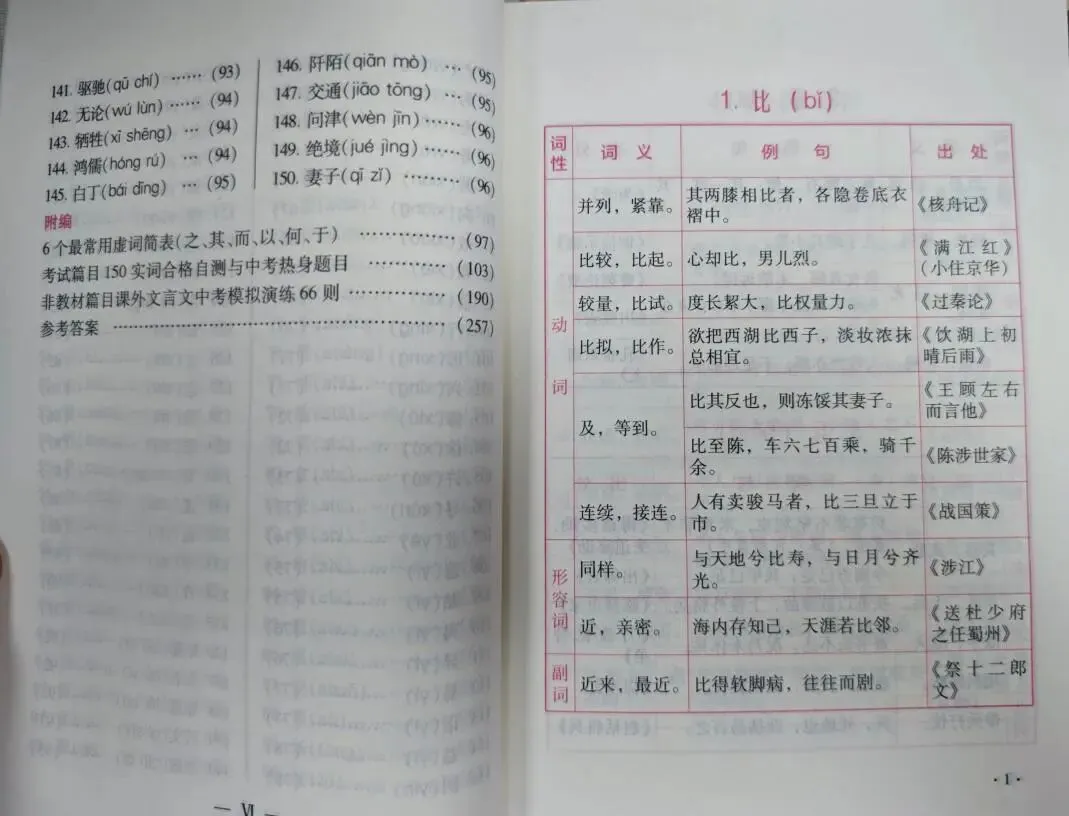 141. 驱驰(qū chí) …… (93)
142. 无论(wú lùn) …… (94)
143. 牺牲(xī shēng) … (94)
144. 鸿儒(hóng rú) … (94)
145. 白丁(bái dīng) … (95)
146. 阡陌(qiān mò) … (95)
147. 交通(jiāo tōng) … (95)
148. 问津(wèn jīn) … (96)
149. 绝境(jué jìng) … (96)
150. 妻子(qī zǐ) …… (96)
附编
6个最常用虚词简表(之、其、而、以、何、于) ………… (97)
考试篇目150实词合格自测与中考热身题目 ………… (103)
非教材篇目课外文言文中考模拟演练66则 ………… (190)
参考答案 ………………………………… (257)
— Ⅵ —
1. 比 (bǐ)
词性 词义 例句 出处
动词
并列，紧靠。 其两膝相比者，各隐卷底衣
褶中。 《核舟记》
比较，比起。 心却比，男儿烈。 《满江红》
(小住京华)
较量，比试。 度长絜大，比权量力。 《过秦论》
比拟，比作。 欲把西湖比西子，淡妆浓抹
总相宜。 《饮湖上初
晴后雨》
及，等到。 比其反也，则冻馁其妻子。 《王顾左右
而言他》
比至陈，车六七百乘，骑千
余。 《陈涉世家》
连续，接连。 人有卖骏马者，比三旦立于
市。 《战国策》
形容词
同样。 与天地兮比寿，与日月兮齐
光。 《涉江》
近，亲密。 海内存知己，天涯若比邻。 《送杜少府
之任蜀州》
副词
近来，最近。 比得软脚病，往往而剧。 《祭十二郎
文》
·1·